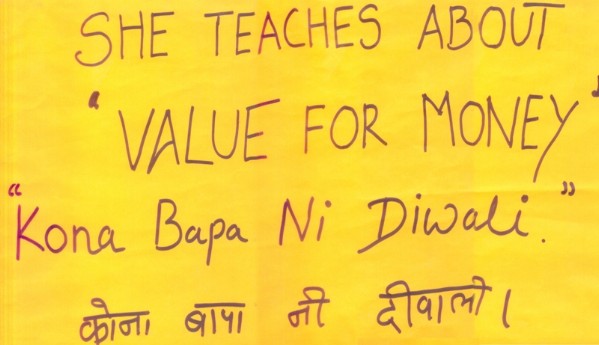 SHE TEACHES ABOUT
"VALUE FOR MONEY"
"Kona Bapa Ni Diwali."
कोना बापा नी दीवाली।